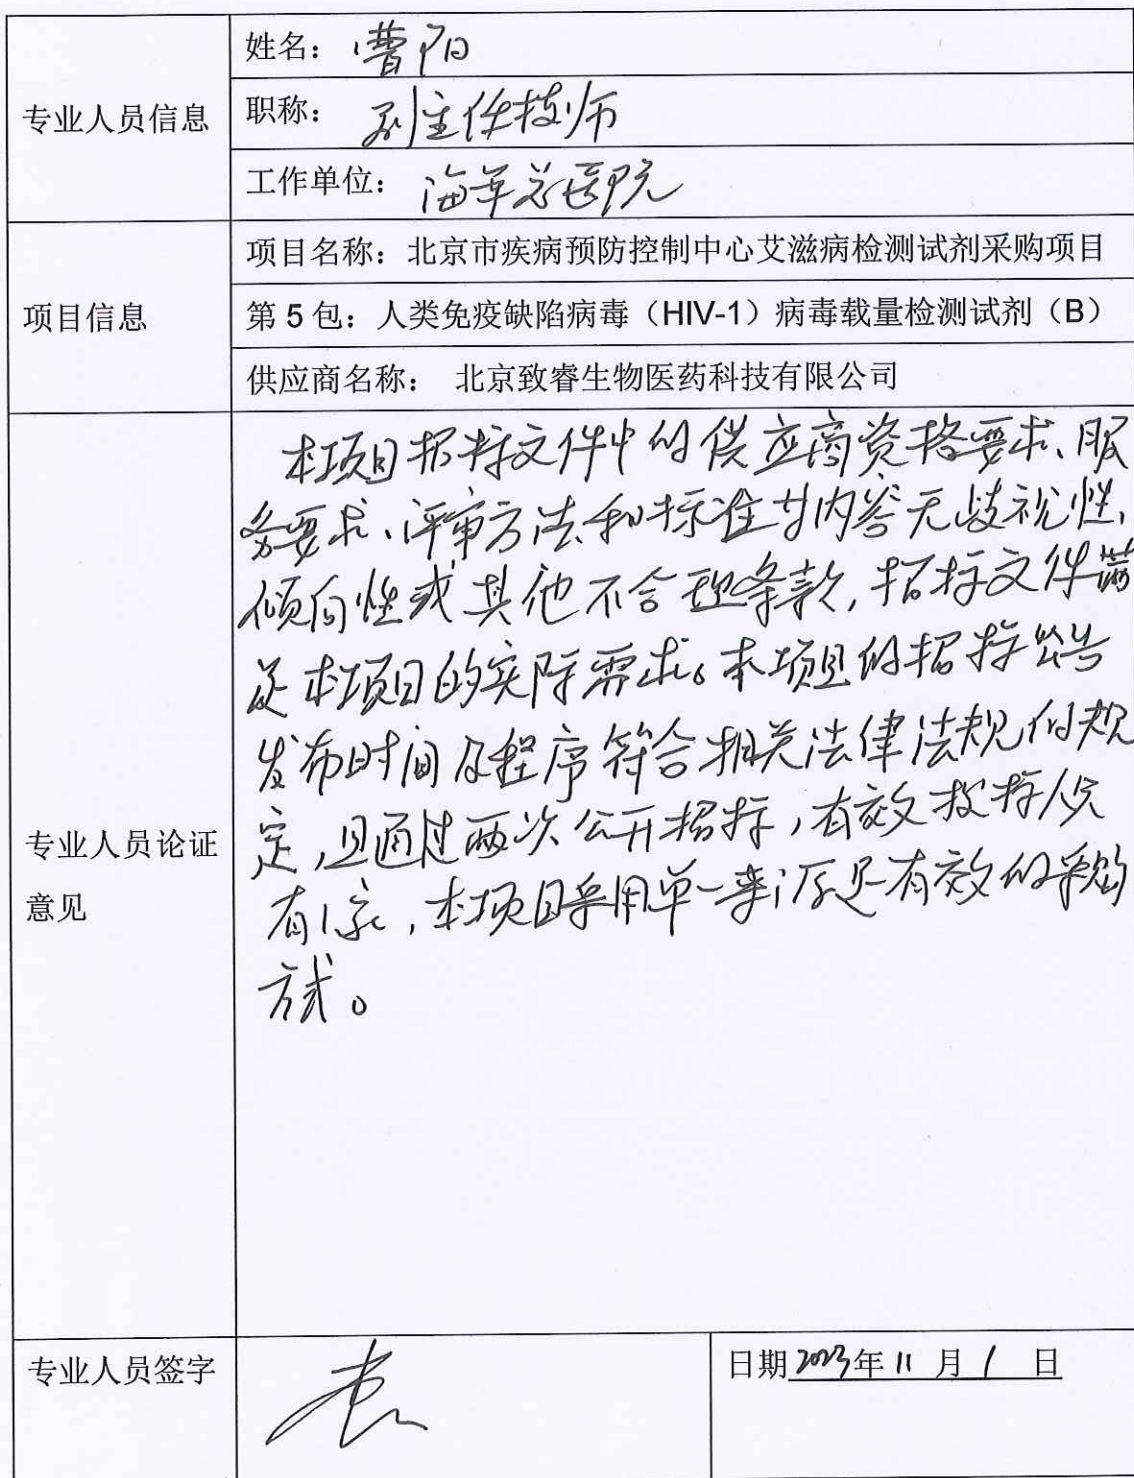 专业人员信息
姓名：曹阳
职称：副主任技师
工作单位：海军总医院
项目信息
项目名称：北京市疾病预防控制中心艾滋病检测试剂采购项目
第 5 包：人类免疫缺陷病毒（HIV-1）病毒载量检测试剂（B）
供应商名称： 北京致睿生物医药科技有限公司
专业人员论证
意见
本项目招标文件中的供应商资格要求、服
务要求、评审方法和标准等内容无歧视性、
倾向性或其他不合理条款，招标文件满
足本项目的实际需求。本项目的招标公告
发布时间及程序符合相关法律法规的规
定，且通过两次公开招标，有效投标人仅
有1家，本项目采用单一来源是有效的采购
方式。
专业人员签字
日期 2023年 11 月 1 日